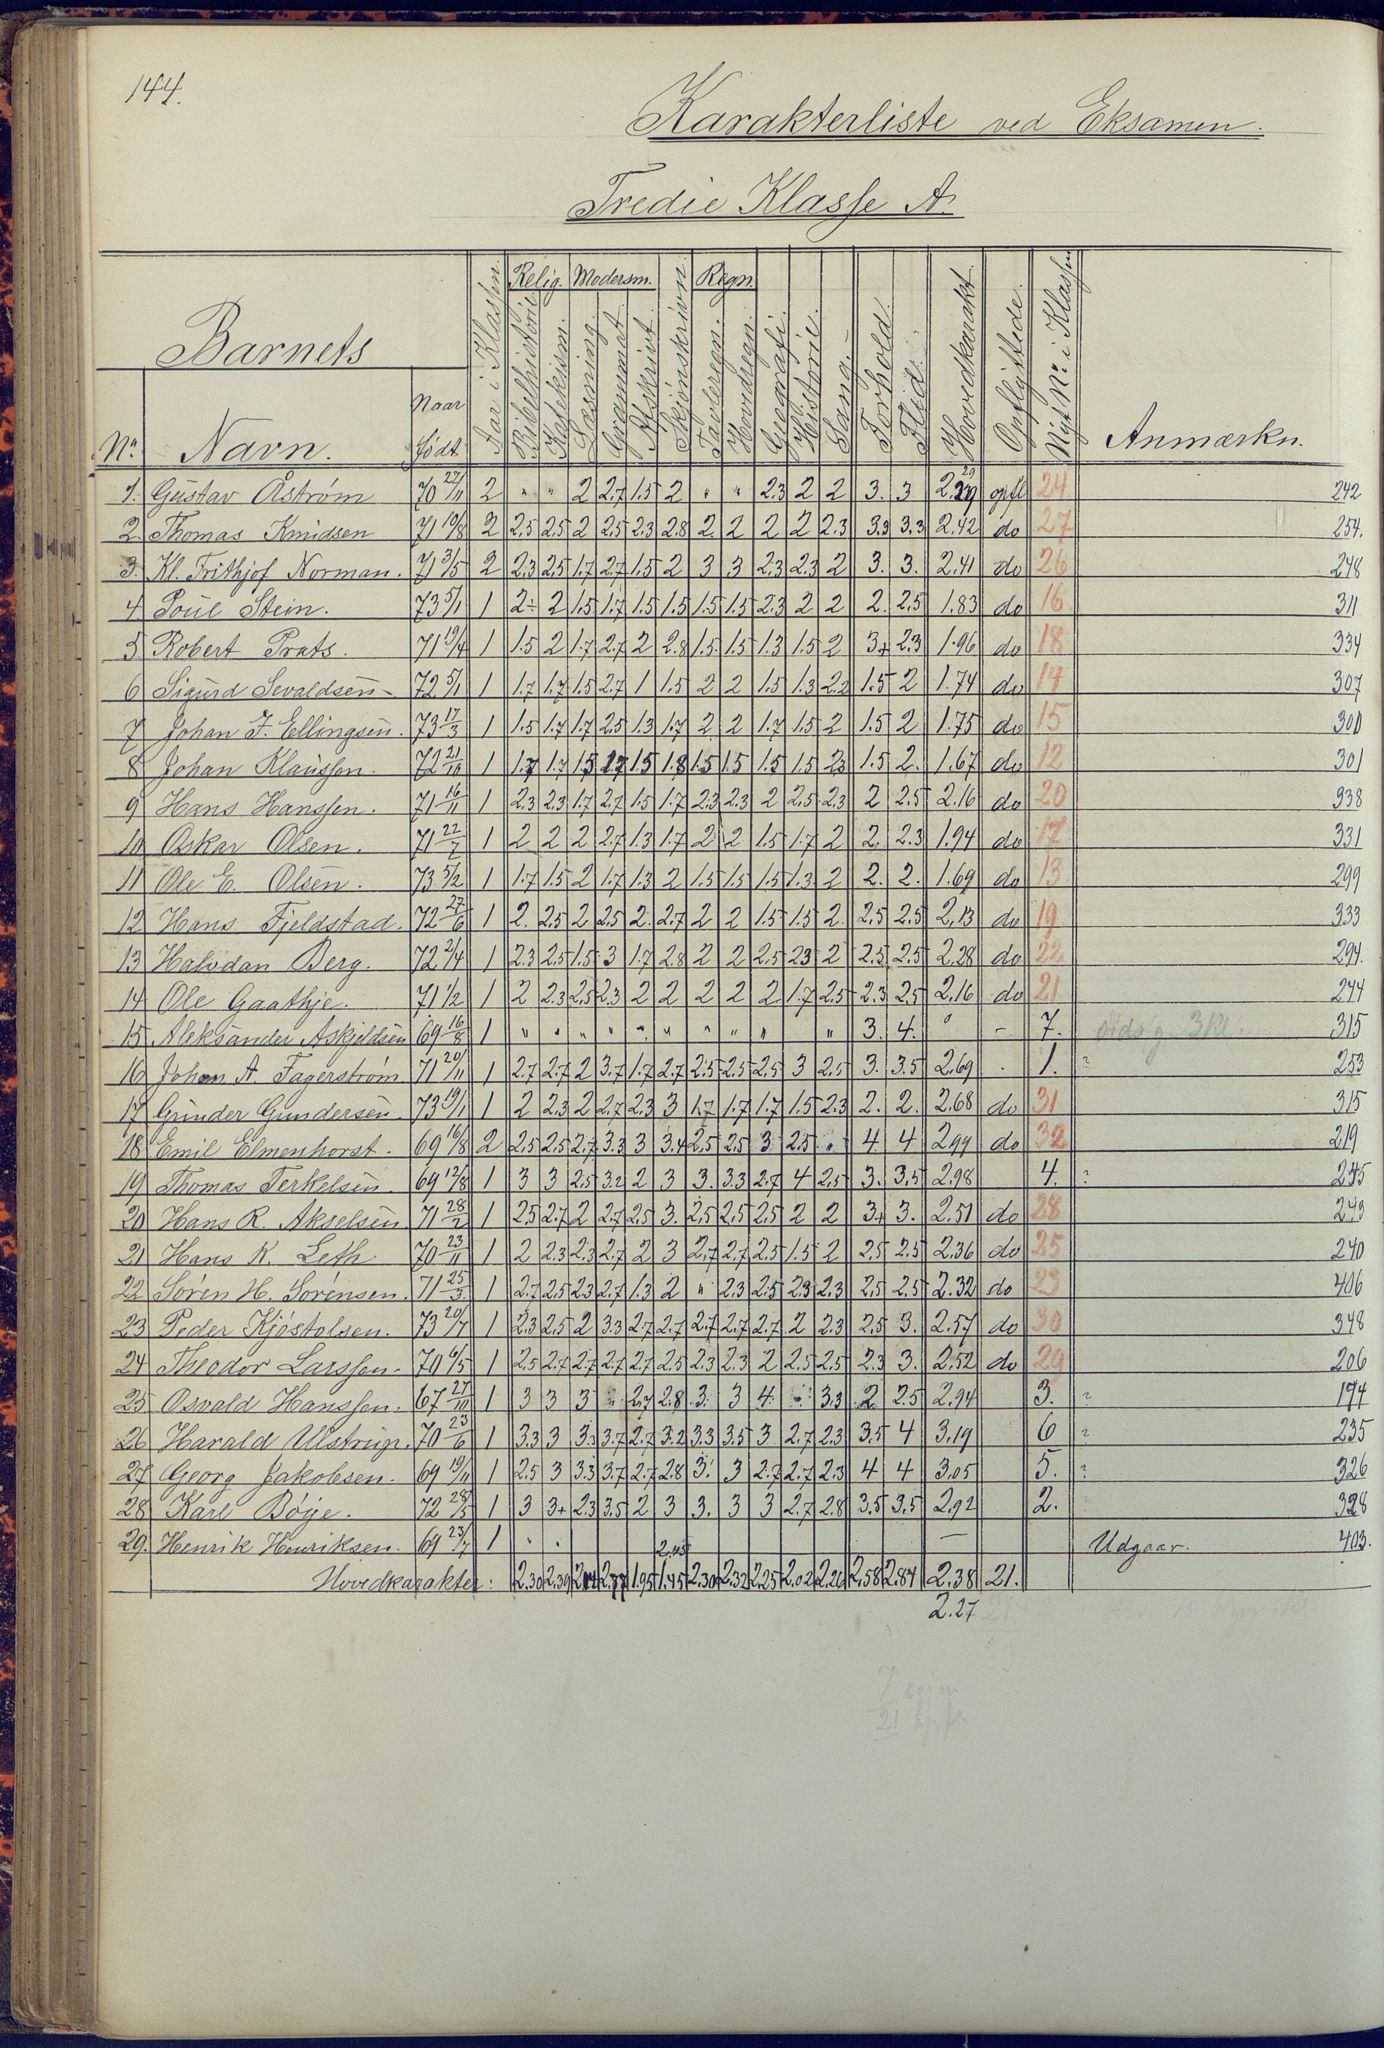 144.
Karakterliste ved Eksamen.
Tredie Klasse A.
Barnets
No. Navn. Naar født. Aar i Klassen. Relig. Bibelhistorie Katekism. Modersm. Læsning. Grammat. Afskrivt. Skjønskrivn. Regn. Tavleregn. Hovedregn. Geografi. Historie. Sang. Forhold. Flid. Hovedkarakt. Opflyttede. Nyt No. i Klassen Anmærkn.
1. Gustav Åstrøm 70 22/11 2 " " 2 2.7 1.5 2 " " 2.3 2 2 3. 3 2.29 opfl 24 242
2. Thomas Knudsen 71 19/8 2 2.5 2.5 2 2.5 2.3 2.8 2. 2 2 2 2.3 3.3 3.3 2.42 do 27 254.
3. Kl. Frithjof Norman. 71 3/5 2 2.3 2.5 1.7 2.7 1.5 2 3 3 2.3 2.3 2 3. 3. 2.41 do 26 248
4 Poul Stein. 73 5/1 1 2÷ 2 1.5 1.7 1.5 1.5 1.5 1.5 2.3 2 2 2. 2.5 1.83 do 16 311
5 Robert Prats. 71 19/4 1 1.5 2 1.7 2.7 2 2.8 1.5. 1.5 1.3 1.5 2 3+ 2.3 1.96 do 18 334
6 Sigurd Sevaldsen 72 5/1 1 1.7 1.7 1.5 2.7 1 1.5 2 2 1.5 1.3 2.2 1.5 2 1.74 do 14 307
7 Johan F. Ellingsen. 73 17/3 1 1.5 1.7 1.7 2.5 1.3 1.7 2 2 1.7 1.5 2 1.5 2 1.75 do 15 300
8 Johan Klaussen. 72 21/10 1 1.7 1.7 1.5 2.7 1.5 1.8 1.5 1.5 1.5 1.5 2.3 1.5 2. 1.67 do 12 301
9 Hans Hanssen. 71 16/11 1 2.3 2.3 1.7 2.7 1.5 1.7 2.3 2.3 2 2.5 2.3 2 2.5 2.16 do 20 338
10 Oskar Olsen. 71 22/7 1 2 2 2 2.7 1.3 1.7 2 2 1.5 1.7 2 2. 2.3 1.94 do 17 331
11 Ole E. Olsen. 73 5/2 1 1.7 1.5 2 1.7 1.3 2 1.5 1.5 1.5 1.3 2 2. 2. 1.69 do 13 299
12 Hans Fjeldstad. 72 27/6 1 2. 2.5 2 2.5 2. 2.7 2 2 1.5 1.5 2. 2.5 2.5 2.13 do 19 333
13 Halvdan Berg. 72 2/4 1 2.3 2.5 1.5 3 1.7 2.8 2 2 2.5 2.3 2 2.5 2.5 2.28 do 22 294.
14 Ole Gaathje. 71 1/2 1 2 2.3 2.5 2.3 2 2 2 2 2 1.7 2.5 2.3 2.5 2.16 do 21 244
15 Aleksander Askjeldsen 69 16/8 1 " " " " " " " " " " 3. 4. " - 7. 315
16 Johan A. Fagerstrøm. 71 20/11 1 2.7 2.7 2 3.7 1.7 2.7 2.5 2.5 2.5 3 2.5 3. 3.5 2.69 . 1. " 253
17 Gunder Gundersen. 73 19/1 1 2 2.3 2 2.7 2.3 3 1.7 1.7 1.7 1.5 2.3 2. 2. 2.68 do 31 315
18 Emil Elmenhorst. 69 16/8 2 2.5 2.5 2.7 3.3 3 3.4 2.5 2.5 3 2.5 " 4. 4 2.99 do 32 219
19 Thomas Terkelsen. 69 12/8 1 3 3 2.5 3.2 2 3 3. 3.3 2.7 4 2.5 3. 3.5 2.98 4. " 245
20 Hans R. Akselsen. 71 28/2 1 2.5 2.7 2 2.7 2.5 3. 2.5 2.5 2.5 2 2 3+ 3. 2.51 do 28 243
21 Hans K. Leth 70 23/11 1 2 2.3 2.3 2.7 2 3 2.7 2.7 2.5 1.5 2 2.5 2.5 2.36 do 25 240
22 Søren H. Sørensen. 71 25/3 1 2.7 2.5 2.3 2.7 1.3 2 " 2.3 2.5 2.3 2.3 2.5 2.5 2.32 do 23 406
23 Peder Kjøstolsen. 73 20/7 1 2.3 2.5 2 3.3 2.7 2.7 2.7 2.7 2.7 2 2.3 2.5 3. 2.57 do 30 348
24 Theodor Larssen. 70 6/5 1 2.5 2.7 2.7 2.7 2.7 2.5 2.3 2.3 2 2.5 2.5 2.3 3. 2.52 do 29 206
25 Osvald Hanssen. 67 27/10 1 3 3 3 " 2.7 2.8 3. 3 4. " 3.3 2. 2.5 2.94 3. " 194
26 Harald Ulstrup. 70 23/6 1 3.3 3 3.3 3.7 2.7 3.2 3.3 3.5 3 2.7 2.3 3.5 4 3.19 6 " 235
27 Georg Jakobsen. 69 19/11 1 2.5 3 3.3 3.7 2.7 2.8 3. 3 2.7 2.7 2.3 4 4 3.05 5. " 326
28 Karl Bøije. 72 28/5 1 3 3+ 2.3 3.5 2 3 3. 3 3 2.7 2.8 3.5 3.5 2.92 2. 328
29. Henrik Henriksen. 69 23/7 1 " " — Udgaar. 403.
2.45
Hovedkarakter: 2.30 2.39 2.14 2.77 1.95 1.45 2.30 2.32 2.25 2.02 2.26 2.58 2.84 2.38 21.
2.27 21
7
21